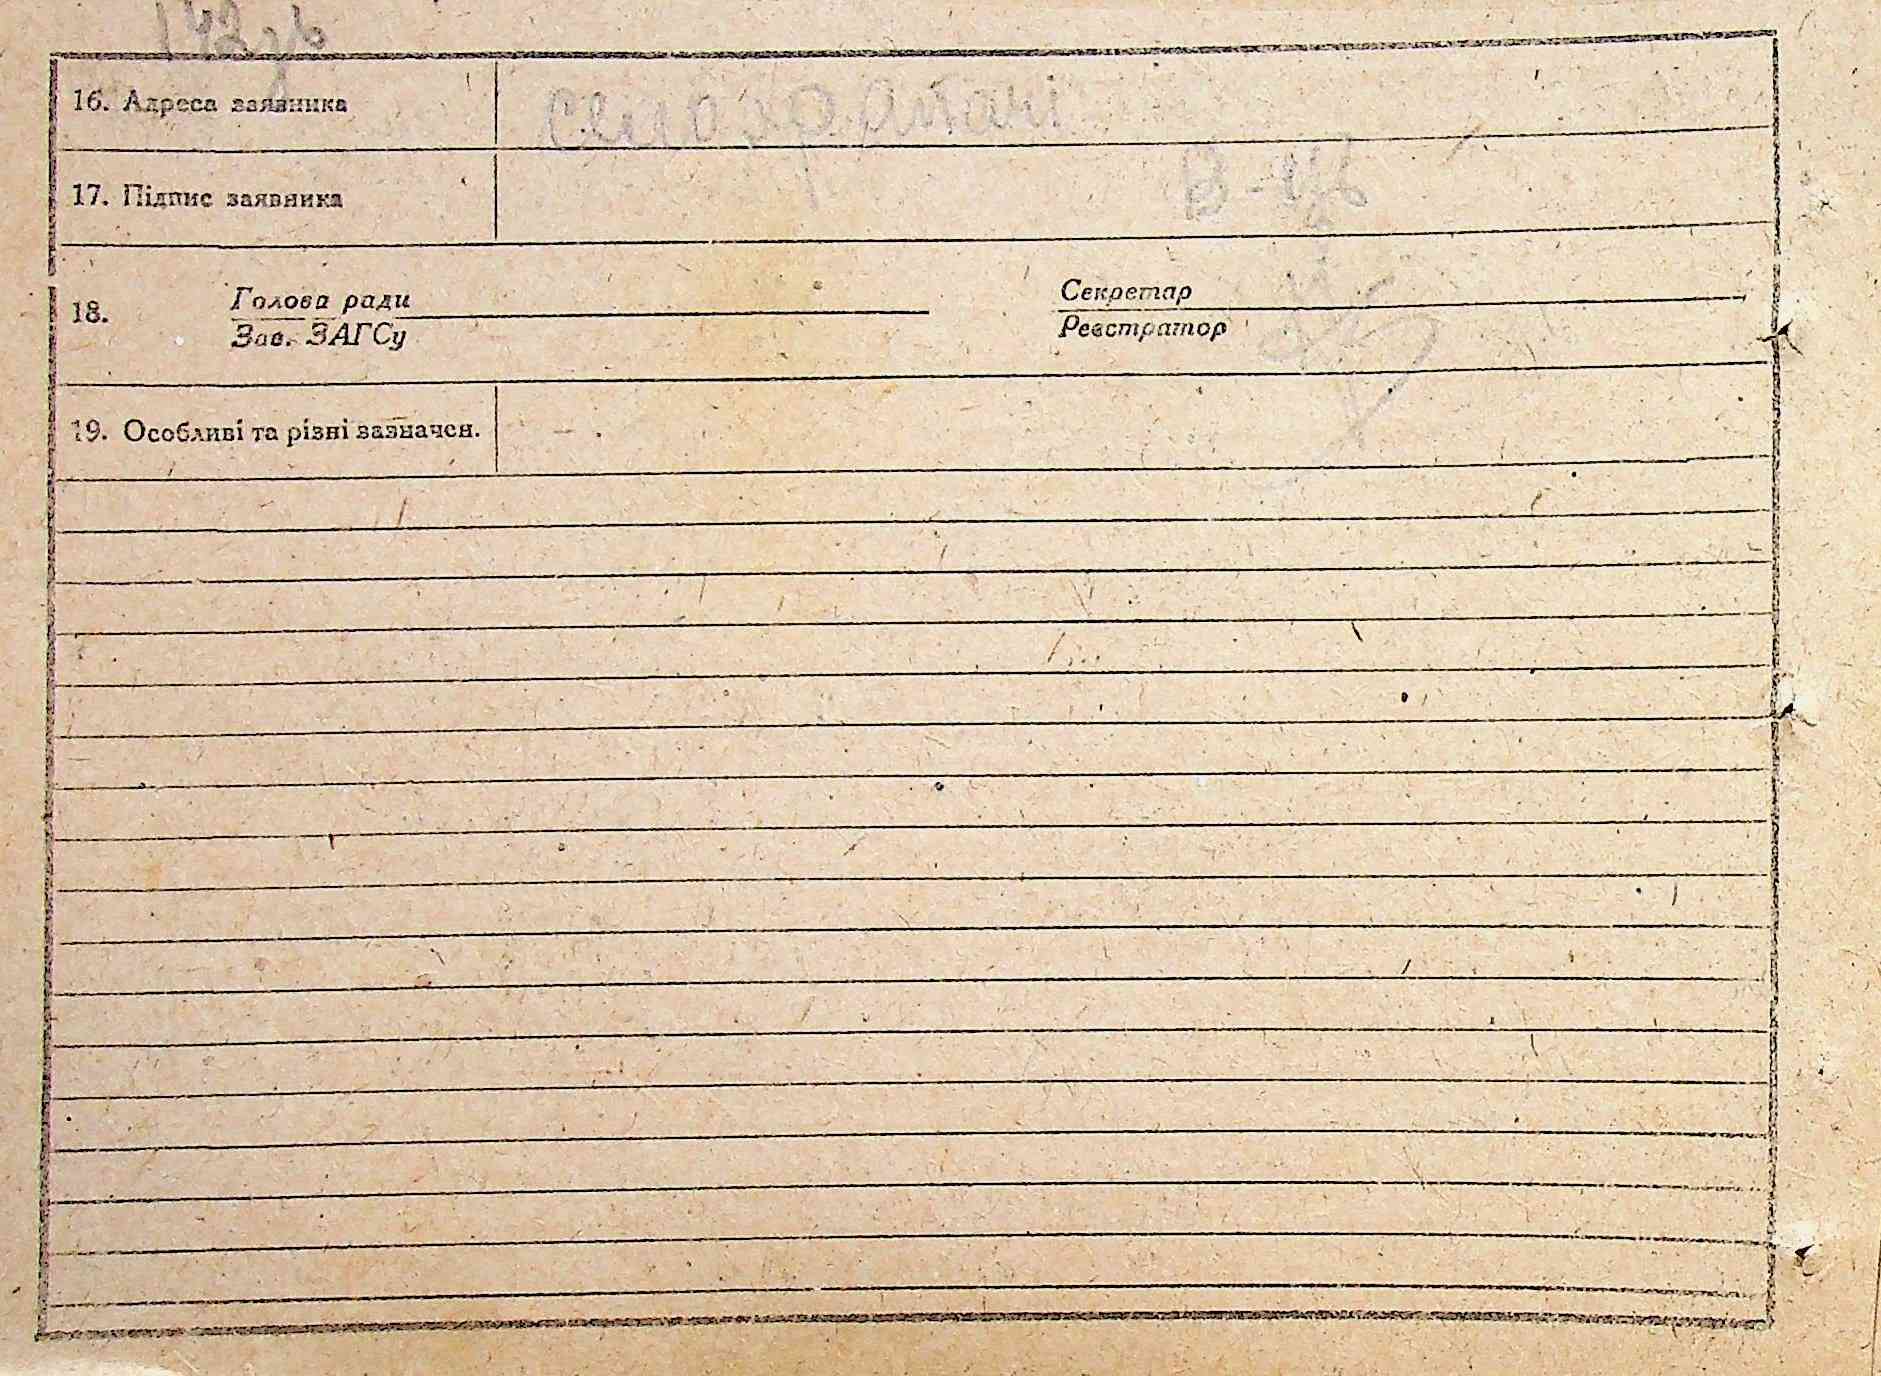 142 зв
16. Адреса заявника село Храпачі
17. Підпис заявника
18. Голова ради Секретар
Зав. ЗАГСу Реєстратор
19. Особливі та різні зазначен. —